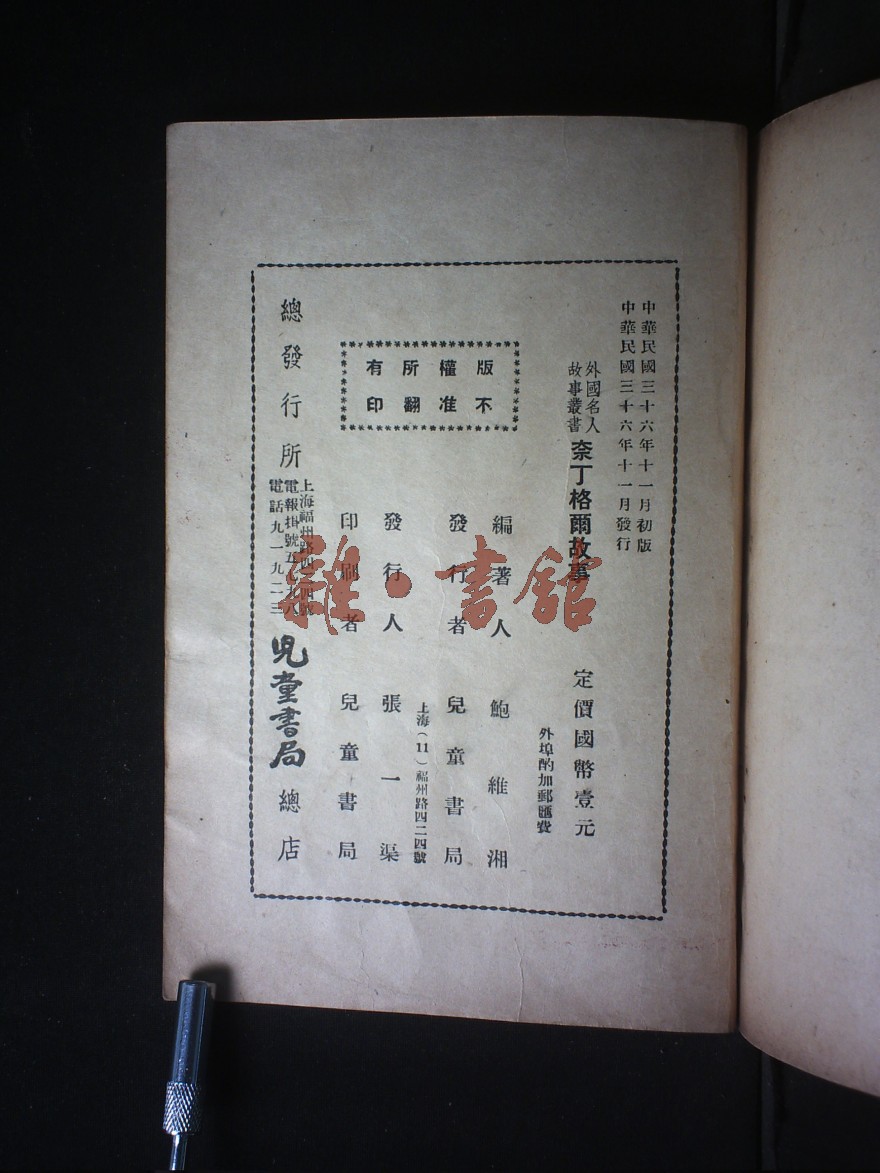 中華民國三十六年十一月初版
中華民國三十六年十一月發行
外國名人
故事叢書
奈丁格爾故事
定價國幣壹元
外埠酌加郵匯費
版權所有
不准翻印
編著人 鮑維湘
發行者 兒童書局
上海(11)福州路四二四號
發行人 張一渠
印刷者 兒童書局
總發行所
上海福州路四二四號
電報掛號五
電話九一九二三
兒童書局
總店
雜·書館